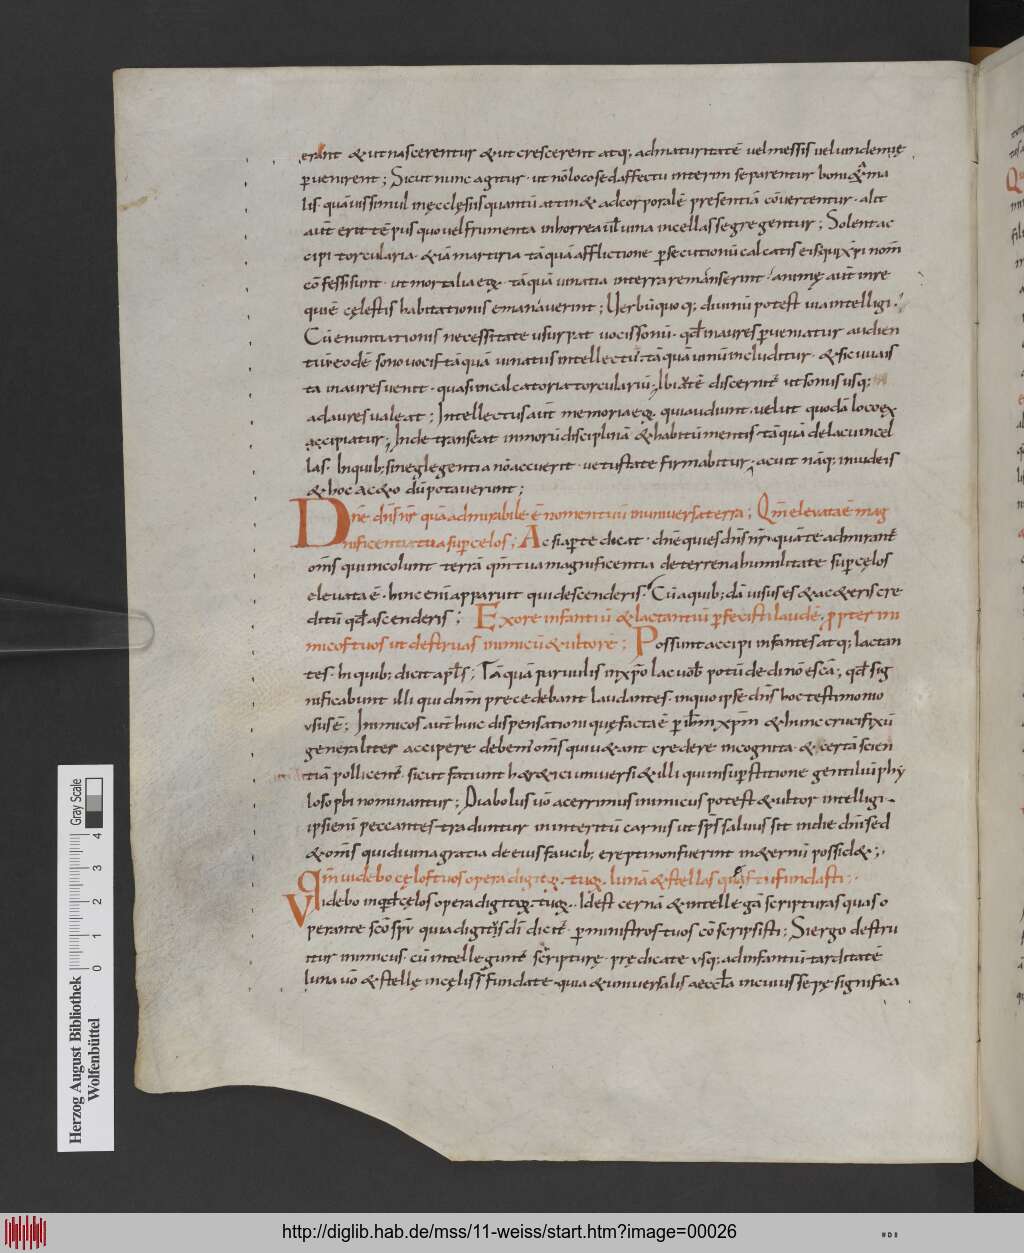 erant &ut nascerentur &ut crescerent atq; admaturitatē velmessis veluindemię
ꝑuenirent; Sicut nunc agitur · ut nōlocosedaffectu interim separentur boni&ma
lis · quāuissimul inęcclęsiisquantū attin& adcorporalē presentiā cōuertentur · alit
aut̄ erit tēpus quo uel frumenta inhorrea ul̄ uina incellas segregentur; Solent ac
cipi torcularia · &iā martiria tāquā afflictione ꝑsecutionū calcatis eisqui xp̄i nom̄
cōfessisunt · ut mortalia eoꝝ · tāquā uinatia interra remanserint · animę aut̄ inre
quiē cęlestis habitationis emanauerint; Uerbū quoq; diuinū potest uua intelligi ·
Cū enuntiationis necessitate usurpat uocissonū · qd̄ inaures ꝑueniatur audien
tiū · eodē sono uocis tāquā uinatiis intellectus tāquā uinū includitur · & sic uua is
ta in aures uenit · quasi incalcatoria torculariū; Ibi &tē discernit̄ ut sonus usq;
ad aures ualeat; Intellectus aut̄ memoria eoꝝ qui audiunt · uelut quodā locoex
accipiatur; Inde transeat inmorū disciplinā &habitū mentis · tāquā delacu incel
las · Inquib; sineglegentia nōaccuerit · uetustate firmabitur; acuit nāq; iniudeis
&hoc ac&o dū potauerunt;
Dn̄e dn̄s nr̄ quā admirabile ē nomen tuū inuniuersa terra; Qm̄ eleuata ē mag
nificentia tua suꝑ celos; Ac si aꝑte dicat · dn̄e quies dn̄s nr̄ · quā te admirant̄
om̄s qui incolunt terrā qm̄ tua magnificentia de terrena humilitate suꝑ cęlos
eleuata ē · hinc enī apparuit qui descenderis · Cū aquib; dā uisus es &ac&eris cre
ditū qd̄ ascenderis; Ex ore infantiū &lactantiū ꝑfecisti laudē, ꝓpter ini
micos tuos ut destruas inimicū &ultorē; Possunt accipi infantes atq; lactan
tes · hi quib; dicit apl̄s; Tāquā paruulis inxp̄o lac uob̄ potū dedi nō escā; qd̄ sig
nificabunt illi qui dn̄m precedebant laudantes · inquo ipse dn̄s hoc testimonio
usus ē; Inimicos aut̄ huic dispensationi quę facta ē ꝑ ih̄m xp̄m &hunc crucifixū
generaliter accipere debem̄ om̄s qui u&ant credere incognita · &certā scien
tiā pollicent̄ · sicut faciunt h&r&ici uniuersi &illi qui insuꝑstitione gentiliū phy
losophi nominantur; Diabolus uō acerrimus inimicus potest &ultor intelligi ·
ipsi enī peccantes traduntur ininteritū carnis ut sp̄s saluus sit indie dn̄i sed
&om̄s qui diuina gratia de eius faucib; erepti non fuerint in&ernū possid&;
Qm̄ uidebo cęlos tuos opera digitoꝝ tuoꝝ · lunā &stellas quas tu fundasti;
Videbo inqd̄ cęlos opera digitoꝝ tuoꝝ · Idest cernā &intellegā scripturas quas o
perante scō spū quia digitus dī dicit̄ · ꝑ ministros tuos cōscripsisti; Si ergo destru
itur inimicus · cū intellegunt̄ scripturę · prędicate usq; adinfantiū tarditatē
luna uō &stellę in cęlis fundate · quia &uniuersalis aeccl̄a incuius sępe significa
Herzog August Bibliothek
Wolfenbüttel
0 1 2 3 4
Gray Scale
http://diglib.hab.de/mss/11-weiss/start.htm?image=00026